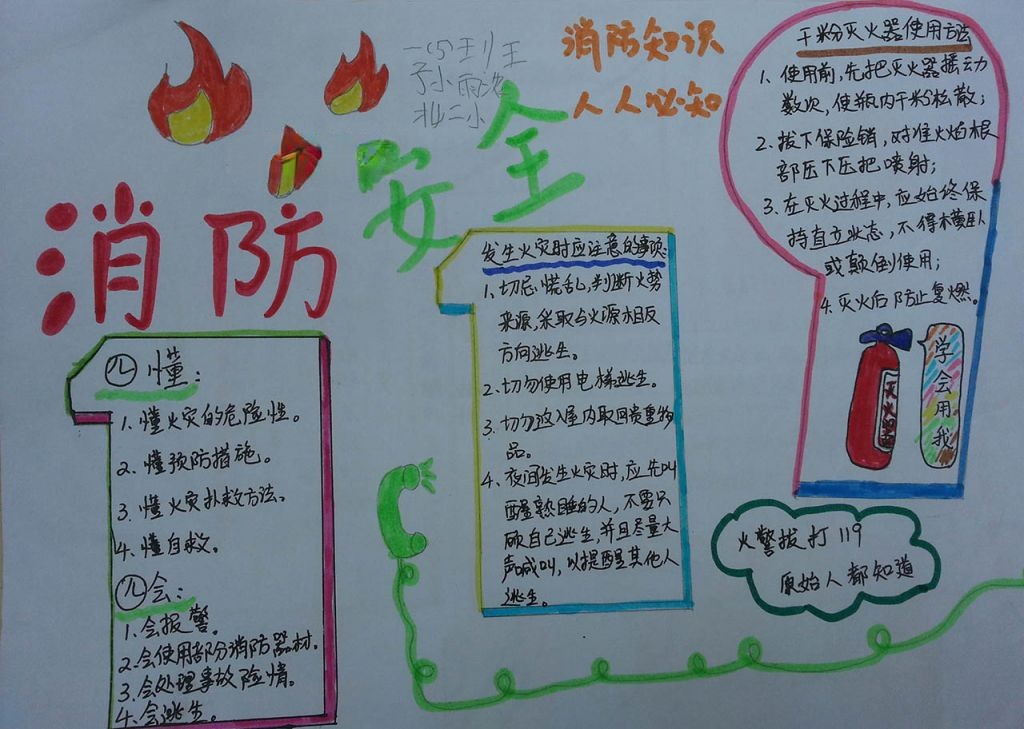 消防安全
消防知识
人人必知
四懂：
1、懂火灾的危险性。
2、懂预防措施。
3、懂火灾扑救方法。
4、懂自救。
四会：
1、会报警。
2、会使用部分消防器材。
3、会处理事故险情。
4、会逃生。
发生火灾时应注意的事项：
1、切忌慌乱，判断火势
来源，采取与火源相反
方向逃生。
2、切勿使用电梯逃生。
3、切勿返入屋内取回贵重物
品。
4、夜间发生火灾时，应先叫
醒熟睡的人，不要只
顾自己逃生，并且尽量大
声喊叫，以提醒其他人
逃生。
干粉灭火器使用方法
1、使用前，先把灭火器摇动
数次，使瓶内干粉松散；
2、拔下保险销，对准火焰根
部压下压把喷射；
3、在灭火过程中，应始终保
持直立状态，不得横卧
或颠倒使用；
4、灭火后防止复燃。
灭火器
学会用我
火警拔打119
原始人都知道